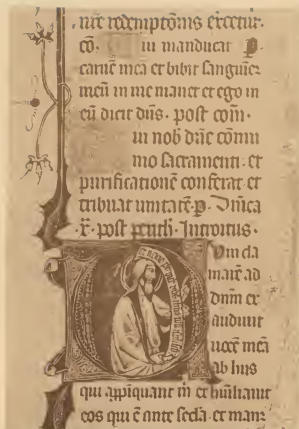 nr̄e redemptōnis exercetur.
cō. ui manducat
carnē meā et bibit sanguinē
meū in me manet et ego in
eū dicit dūs. post cōm.
ui nob dn̄e cōmu
nio sacramenti. et
purificationē conferat et
tribuat unitatē. p. Dn̄ica
x. post penth. Introitus.
um cla
marē ad
dn̄m ex
audiuit
uocē meā
ab hiis
qui appīquant m̄ et hūiliauit
eos qui ē ante secla. et man